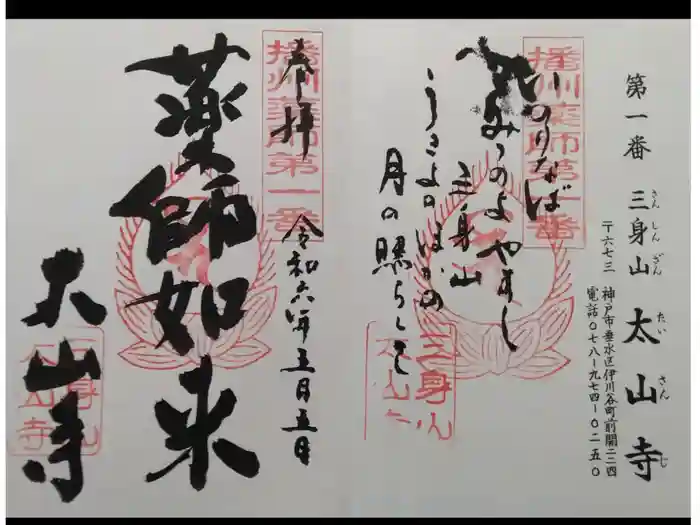 第一番 三身山 太山寺
さんしんざん たいさんじ
〒六七三 神戸市垂水区伊川谷町前開二二四
電話〇七八-九七四-〇二五〇
播州薬師第一番
いのりなば
みつのよやすし
三身山
うきよのほかの
月の照らして
三身山
太山寺
播州薬師第一番
奉拝
令和六年五月五日
薬師如来
太山寺
三身山
太山寺